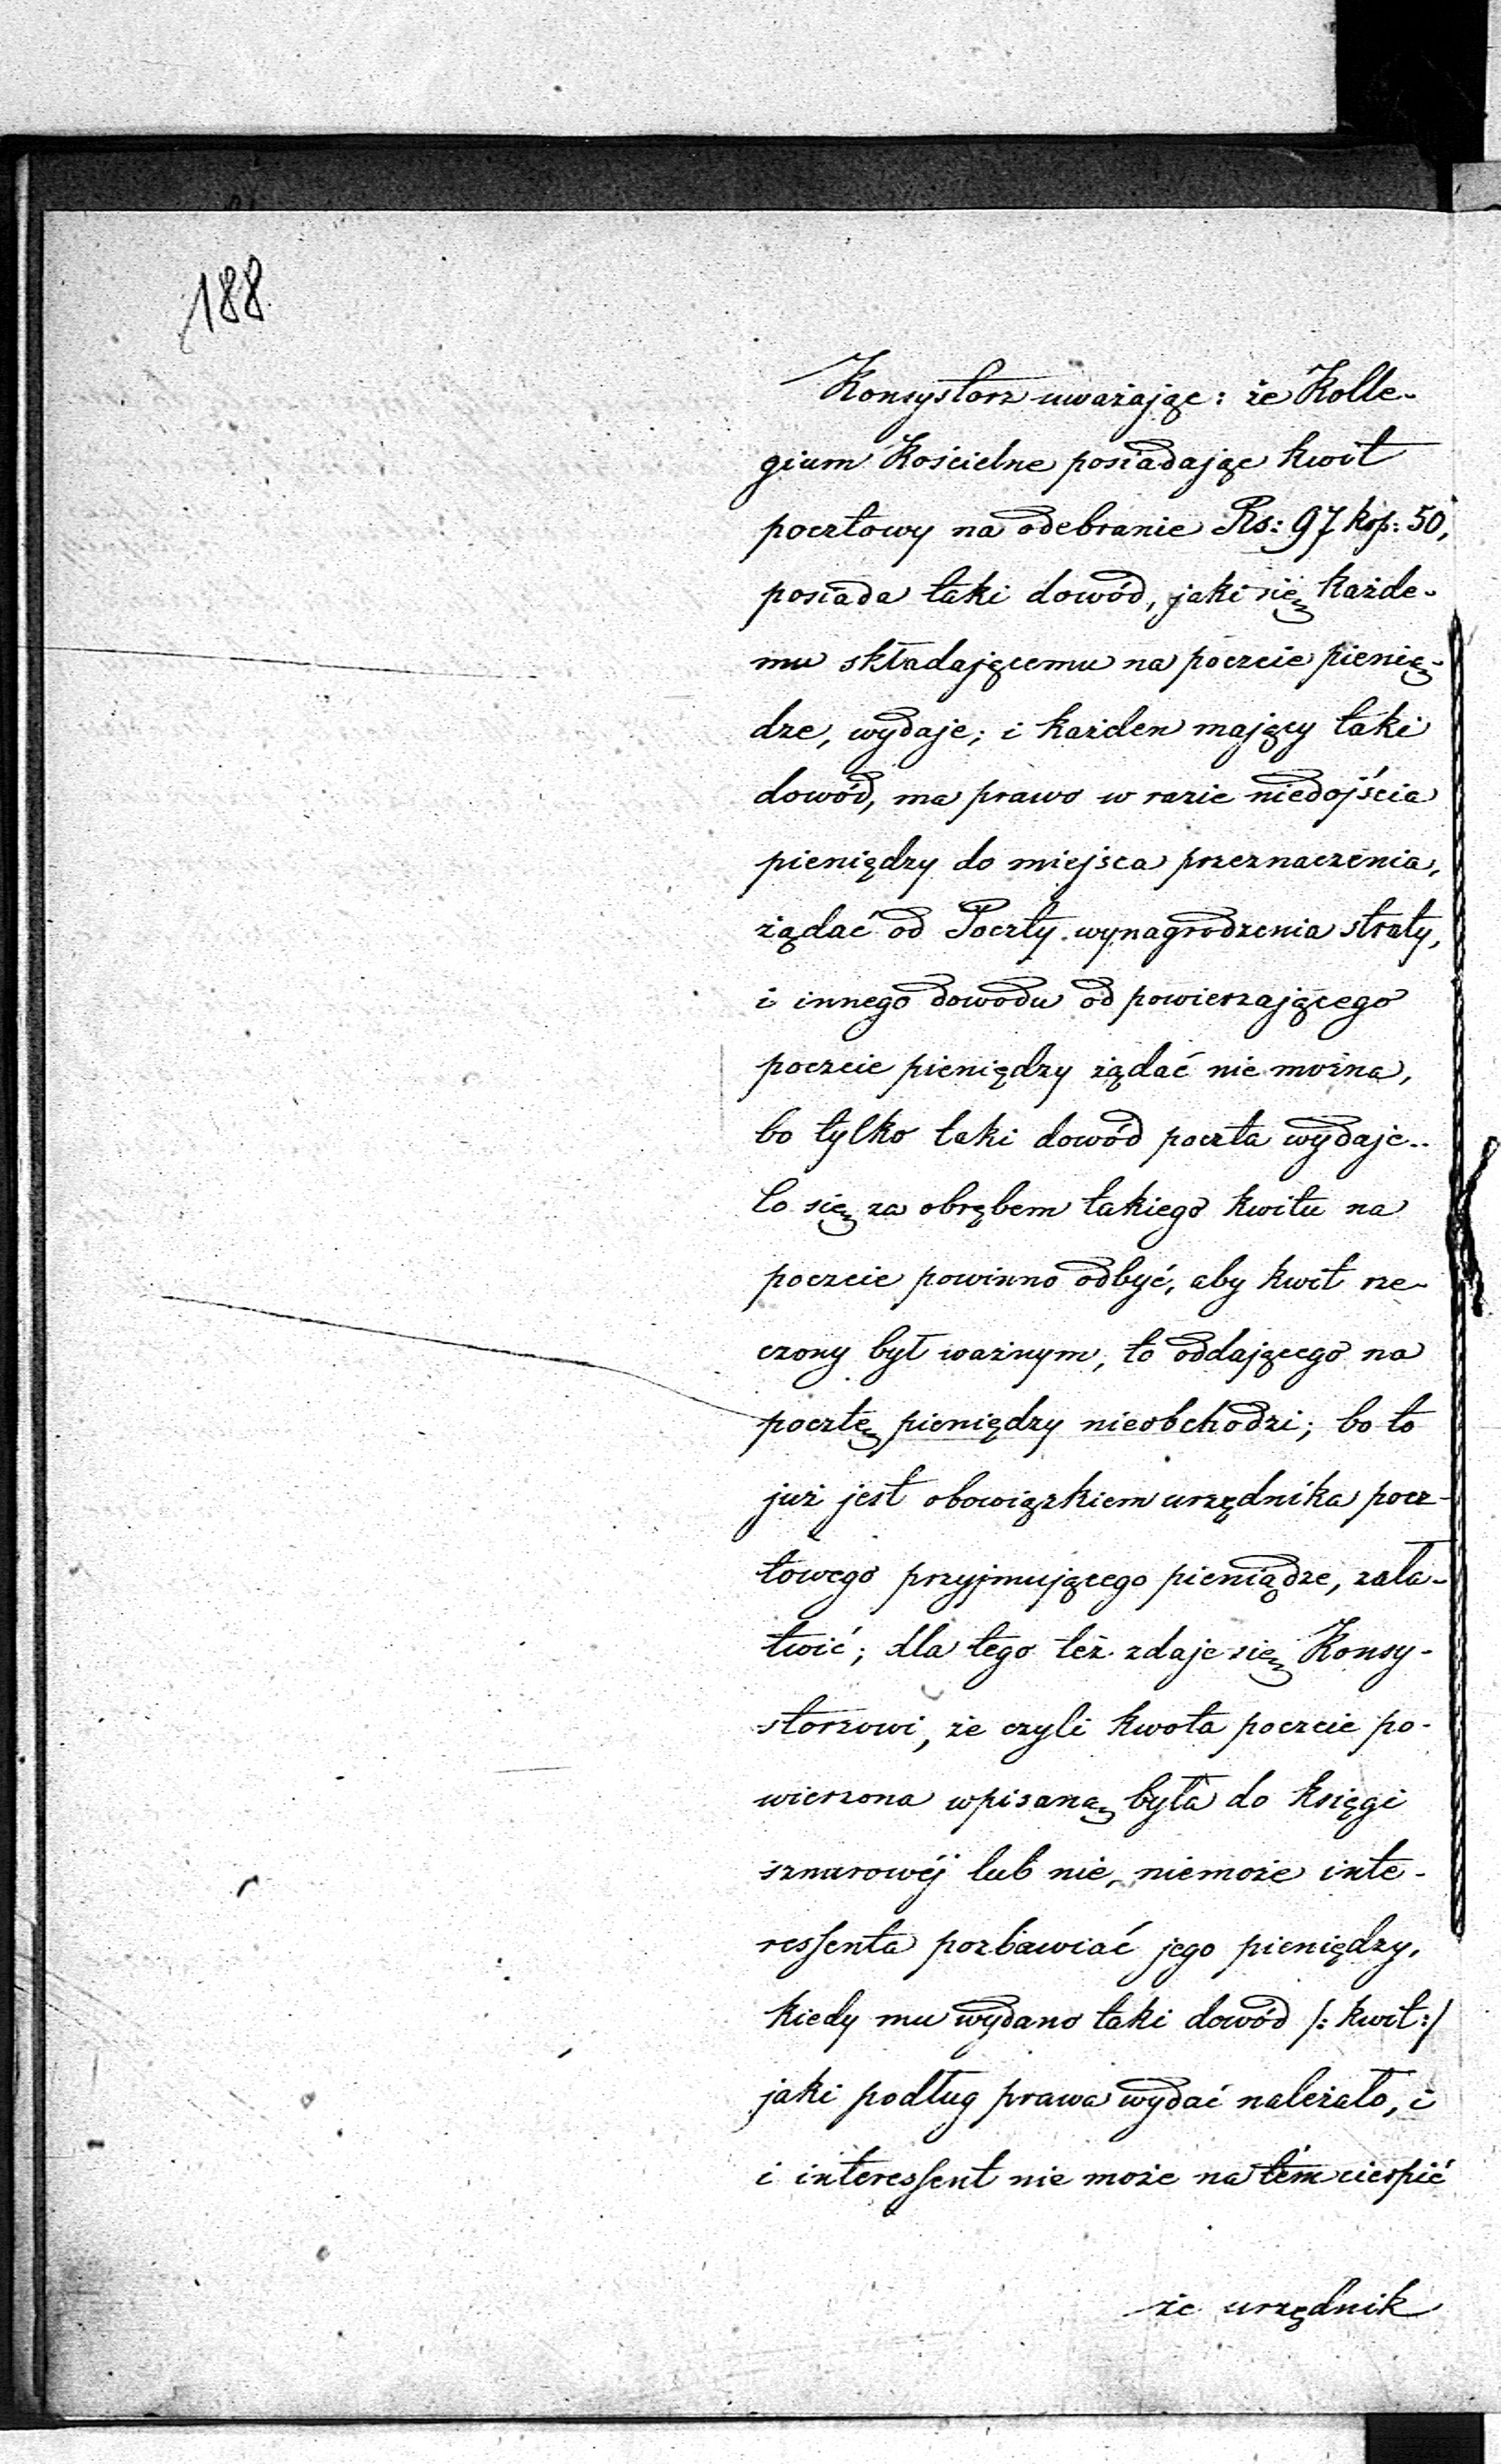 188
Konsystorz uważając: że Kolle-
gium Kościelne posiadając kwit
pocztowy na odebranie Rs: 97 kop: 50,
posiada taki dowód, jaki się każde-
mu składającemu na poczcie pienię-
dze, wydaje; i każden mający taki
dowód, ma prawo w razie niedojścia
pieniędzy do miejsca przeznaczenia,
żądać od Poczty wynagrodzenia straty,
i innego dowodu od powierzającego
poczcie pieniędzy żądać nie można,
bo tylko taki dowód poczta wydaje..
Co się za obrębem takiego kwitu na
poczcie powinno odbyć, aby kwit rze-
czony był ważnym, to oddającego na
pocztę pieniędzy nieobchodzi; bo to
już jest obowiązkiem urzędnika pocz-
towego przyjmującego pieniądze, zała-
twić; dla tego też zdaje się Konsy-
storzowi, że czyli kwota poczcie po-
wierzona wpisaną była do księgi
sznurowéj lub nie, niemoże inte-
ressenta pozbawiać jego pieniędzy,
kiedy mu wydano taki dowód /: kwit :/
jaki podług prawa wydać należało, i
i interessent nie może na tém cierpić
że urzędnik